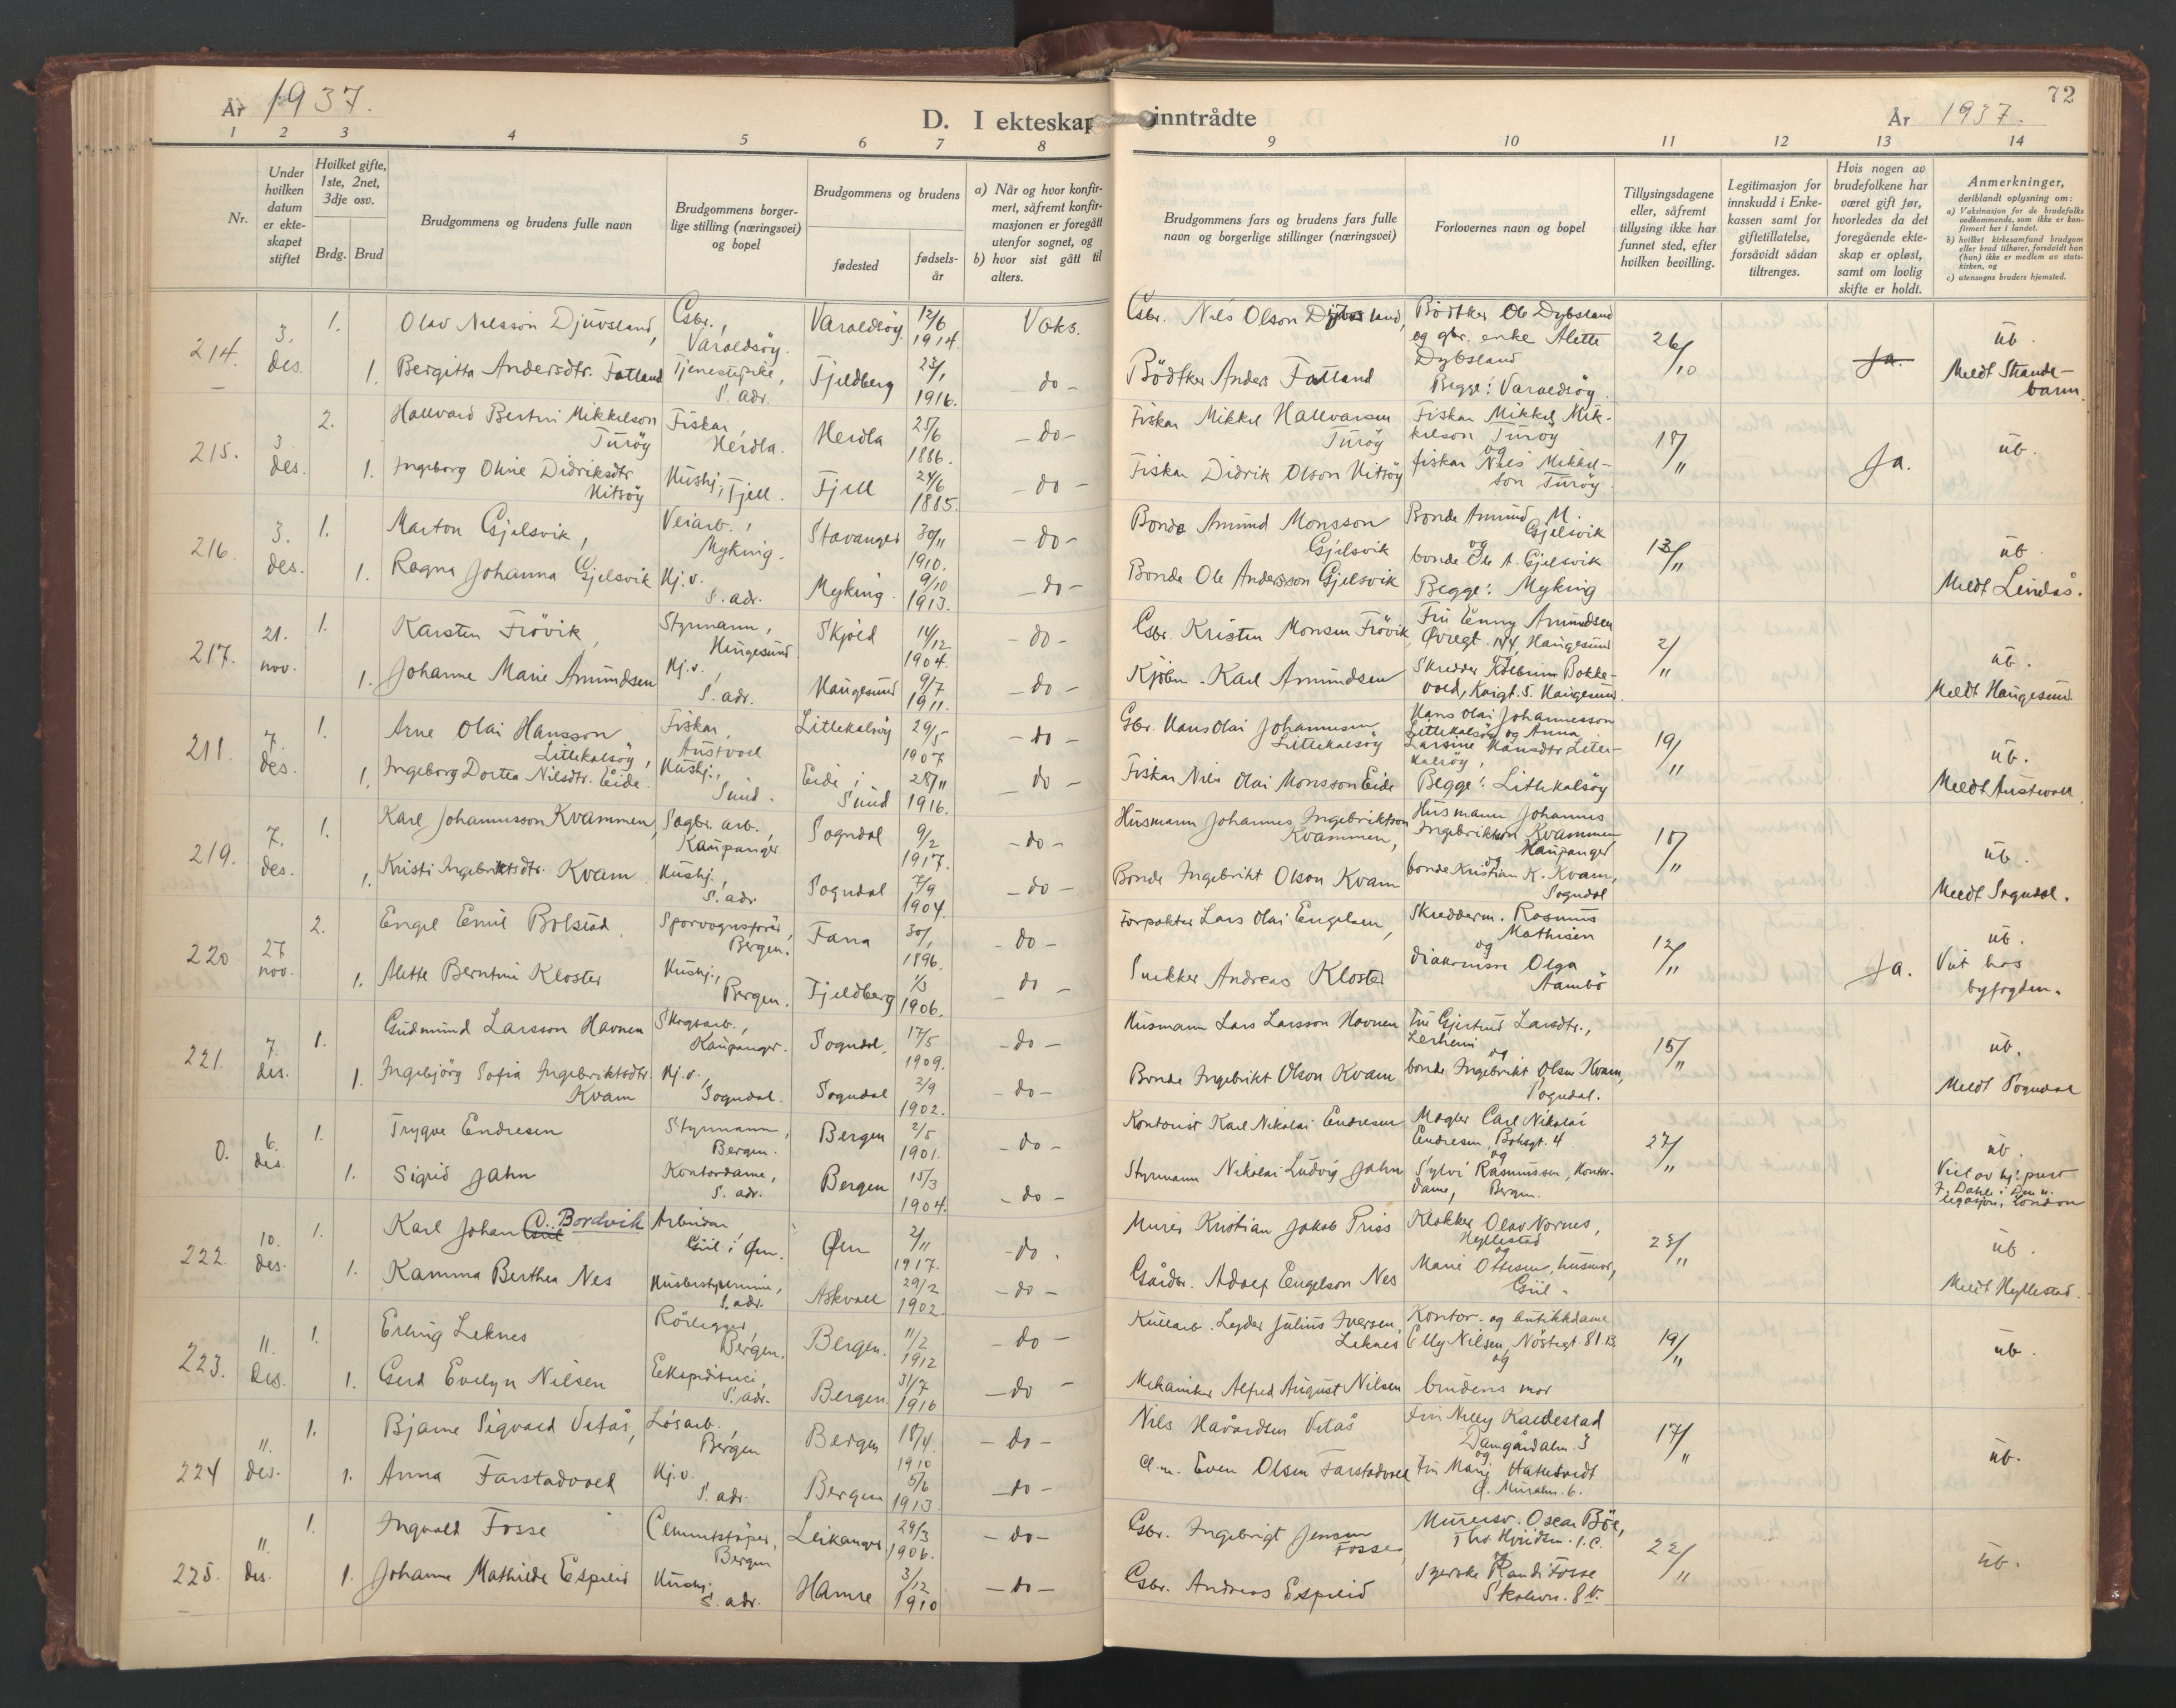 År 1937.
D. I ekteskap inntrådte
År 1937.
72
1 2 3 4 5 6 7 8 9 10 11 12 13 14
Nr.
Under hvilken datum er ekteskapet stiftet
Hvilket gifte, 1ste, 2net, 3dje osv.
Brdg. Brud
Brudgommens og brudens fulle navn
Brudgommens borgerlige stilling (næringsvei) og bopel
Brudgommens og brudens
fødested
fødselsår
a) Når og hvor konfirmert, såfremt konfirmasjonen er foregått utenfor sognet, og
b) hvor sist gått til alters.
Brudgommens fars og brudens fars fulle navn og borgerlige stillinger (næringsvei)
Forlovernes navn og bopel
Tillysingsdagene eller, såfremt tillysing ikke har funnet sted, efter hvilken bevilling.
Legitimasjon for innskudd i Enkekassen samt for giftetillatelse, forsåvidt sådan tiltrenges.
Hvis nogen av brudefolkene har været gift før, hvorledes da det foregående ekteskap er opløst, samt om lovlig skifte er holdt.
Anmerkninger,
deriblandt oplysning om:
a) Vaksinasjon for de brudefolks vedkommende, som ikke er konfirmert her i landet.
b) hvilket kirkesamfund brudgom eller brud tilhører, forsåvidt han (hun) ikke er medlem av statskirken, og
c) utensogns bruders hjemsted.
214. 3. des. 1. Olav Nilsson Djuvsland, Gsbr., Varaldsøy. Varaldsöy 12/6 1914. Vaks.
Gsbr. Nils Olson land, Bödtker Ole Dybsland og gbr. enke Alette Dybsland 26/10 Ja. üb.
1. Bergitta Andersdtr. Fatland Tjenestepike, S. adr. Fjeldberg 23/1 1916. - do -
Bödtker Anders Fatland Begge: Varaldsöy Meldt Strandebarm.
215. 3. des. 2. Hallvard Bertin Mikkelson Turöy Fiskar, Herdla. Herdla 25/6 1886. - do -
Fiskar Mikkel Hallvarsen Turöy Fiskar Mikkel Mikkelson Turöy og 18/11 Ja. üb.
1. Ingeborg Oline Didriksdtr. Hitsöy Hushj., Fjell. Fjell 24/6 1885. - do -
Fiskar Didrik Olson Hitsöy fiskar Nils Mikkelson Turöy
216. 3. des. 1. Marton Gjelsvik, Veiarb., Myking. Stavanger 30/11 1910. - do -
Bonde Amund Monsson Gjelsvik Bonde Amund M. Gjelsvik og 13/11 üb.
1. Ragna Johanna Gjelsvik Hj.v. S. adr. Myking. 9/10 1913. - do -
Bonde Ole Andersson Gjelsvik bonde Ole A. Gjelsvik Begge: Myking Meldt Lindås.
217. 21. nov. 1. Karsten Frövik, Styrmann, Haugesund Skjold 14/12 1904. - do -
Gsbr. Kristen Monsen Frövik, Fru Enny Amundsen Øvregt. 144, Haugesund og 2/11 üb.
1. Johanne Marie Amundsen Hj.v. S. adr. Haugesund 9/7 1911. - do -
Kjøbm. Karl Amundsen Skredder Bokkevold, S. Haugesund. Meldt Haugesund.
218. 7. des. 1. Arne Olai Hansson Littlekalsöy, Fiskar, Austvoll Littlekalsöy 29/5 1907 - do -
Gbr. Hans Olai Johannesen Littlekalsöy Hans Olai Johannesson Littlekalsöy og Anna Larsine Hansdtr. Litlekalsöy, 19/11 üb.
1. Ingeborg Dortea Nilsdtr. Eide. Hushj., Sund. Eide i Sund 28/11 1916. - do -
Fiskar Nils Olai Monsson Eide Begge: Littlekalsöy Meldt Austevoll.
219. 7. des. 1. Karl Johannesson Kvammen, Sagbr. arb., Kaupanger Sogndal 9/2 1917. - do -
Husmann Johannes Ingebriktson Kvammen, Husmann Johannes Ingebriktson Kvammen Kaupanger og 18/11 üb.
1. Kristi Ingebriktsdtr. Kvam. Hushj., S. adr. Sogndal 7/9 1904. - do -
Bonde Ingebrikt Olson Kvam bonde Kristian K. Kvam, Sogndal Meldt Sogndal.
220 27 nov. 2. Engel Emil Bolstad. Sporvognsförer, Bergen. Fana 30/1 1896. - do -
Forpakter Lars Olai Engelsen, Skredderm. Rasmus Mathisen og 12/11 Ja. üb.
1. Alette Berntine Kloster Hushj., Bergen. Fjeldberg 1/3 1906. - do -
Snekker Andreas Kloster diakonisse Olga Aambö Viet hos byfogden.
221. 7. des. 1. Gudmund Larsson Havnen Skogsarb., Kaupanger. Sogndal. 17/5 1909. - do -
Husmann Lars Larsson Havnen Fru Gjertrud Larsdtr., Lerheim og 15/11 üb.
1. Ingebjörg Sofia Ingebriktsdtr. Kvam Hj.v., Sogndal. Sogndal 2/9 1902. - do -
Bonde Ingebrikt Olson Kvam bonde Ingebrikt Olsen Kvam, Sogndal. Meldt Sogndal
0. 6. des. 1. Trygve Endresen Styrmann, Bergen. Bergen 2/5 1901. - do -
Kontorist Karl Nikolai Endresen Megler Carl Nikolai Endresen, 4 og 27/11 üb.
1. Sigrid Jahn Kontordame, S. adr. Bergen 15/3 1904. - do -
Styrmann Nikolai Ludvig Jahn Sylvi Rasmussen, Kontordame, Bergen. Viet av hj. prest Dahle i Den n. legasjon, London
222. 10. des. 1. Karl Johan Bordvik Arbeidar Guil i Øen. Øen 2/11 1917. - do -
Murer Kristian Jakob Friis Klokker Olav Nornes, Hyllestad og 23/11 üb.
1. Kamma Berthea Nes Husbestyrerinne, S. adr. Askvoll 29/2 1902. - do -
Gårdbr. Adolf Engelson Nes Marie Ottesen, husmor, Guil. Meldt Hyllestad.
223. 11. des. 1. Erling Leknes Rörlegger, Bergen. Bergen. 11/2 1912 - do -
Kullarb. Leyder Julius Iversen Leknes Kontor- og butikkdame Elly Nilsen, Nöstegt. 81 B, og 19/11 üb.
1. Gerd Evelyn Nilsen Ekspeditrice, S. adr. Bergen. 31/7 1916 - do -
Mekaniker Alfred August Nilsen brudens mor
224 11. des. 1. Bjarne Sigvald Vetås, Lösarb., Bergen Bergen 18/4 1910 - do -
Nils Havardsen Vetås Fru Nelly Kaldestad Damgårdalm. 3 og 17/11 üb.
1. Anna Farstadvoll Hj.v. S. adr. Bergen 5/6 1913. - do -
Even Olsen Farstadvoll Fru Marie Hatlestvedt 6.
225. 11. des. 1. Ingvald Fosse Cementstöper, Bergen Leikanger 29/3 1906. - do -
Gsbr. Ingebrigt Jensen Fosse, Murersv. Oscar Böe, og 22/11 üb.
1. Johanne Mathilde Espelid Hushj. S. adr. Hamre 3/12 1910 - do -
Gsbr. Andreas Espelid Syerske Randi Fosse